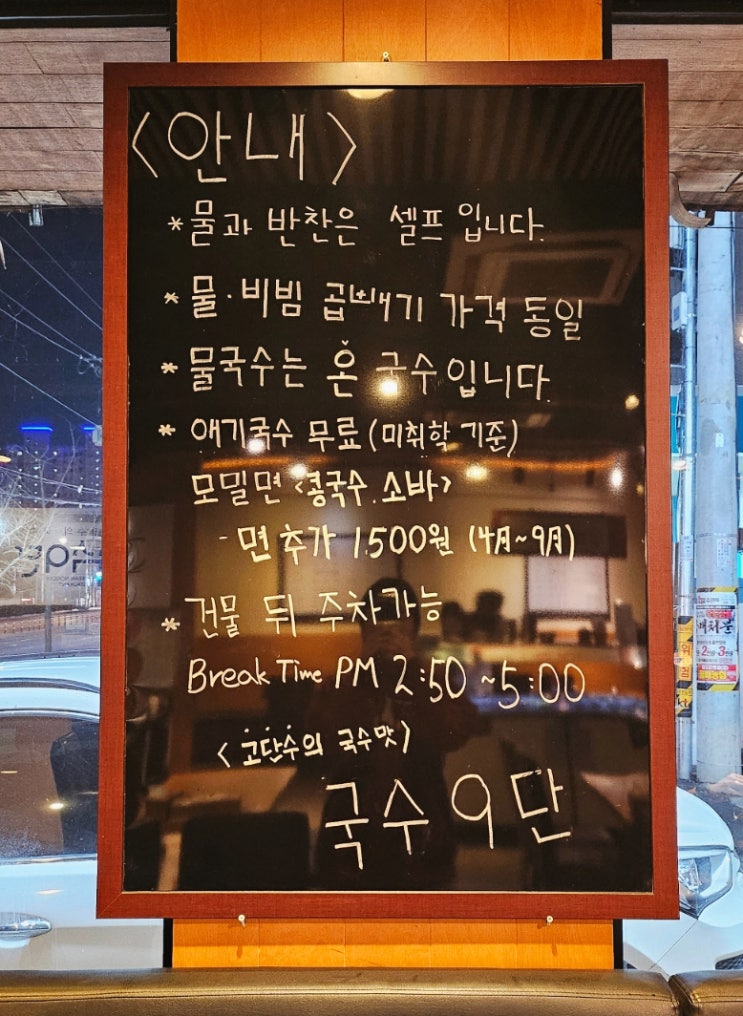 <안내>
*물과 반찬은 셀프입니다.
*물·비빔 곱빼기 가격 동일
*물국수는 온국수입니다.
* 애기국수 무료(미취학 기준)
모밀면 <콩국수.소바>
- 면 추가 1.500원 (4月~9月)
*건물 뒤 주차가능
Break Time PM 2:50~5:00
<고단수의 국수맛>
국수 9단